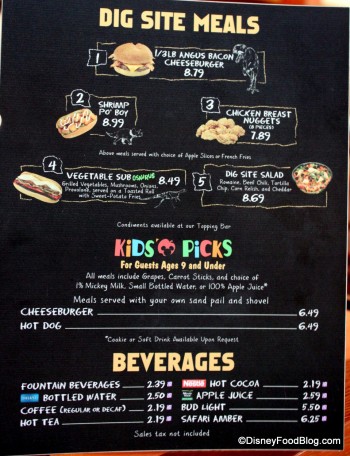 DIG SITE MEALS
1
1/3LB ANGUS BACON
CHEESEBURGER
8.79
2
SHRIMP
PO' BOY
8.99
3
CHICKEN BREAST
NUGGETS
(8 PIECES)
7.89
Above meals served with choice of Apple Slices or French Fries
4
VEGETABLE SUB OSAURUS
Grilled Vegetables, Mushrooms, Onions,
Provolone, served on a Toasted Roll
with Sweet-Potato Fries
8.49
5
DIG SITE SALAD
Romaine, Beef Chili, Tortilla
Chip, Corn Relish, and Cheddar
8.69
Condiments available at our Topping Bar
KiDS' PiCKS
For Guests Ages 9 and Under
All meals include Grapes, Carrot Sticks, and choice of
1% Mickey Milk, Small Bottled Water, or 100% Apple Juice*
Meals served with your own sand pail and shovel
CHEESEBURGER 6.49
HOT DOG 6.49
*Cookie or Soft Drink Available Upon Request
BEVERAGES
FOUNTAIN BEVERAGES 2.39
BOTTLED WATER 2.50
COFFEE (REGULAR OR DECAF) 2.19
HOT TEA 2.19
Nestlé HOT COCOA 2.19
APPLE JUICE 2.59
BUD LIGHT 5.50
SAFARI AMBER 6.25
Sales tax not included
©DisneyFoodBlog.com